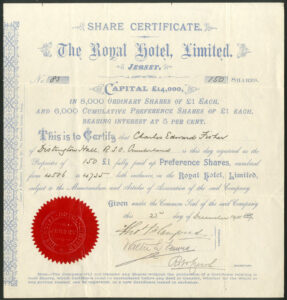 SHARE CERTIFICATE.
The Royal Hotel, Limited.
JERSEY.
No. 85 150 SHARES.
CAPITAL £14,000.
IN 8,000 ORDINARY SHARES OF £1 EACH,
AND 6,000 CUMULATIVE PREFERENCE SHARES OF £1 EACH,
BEARING INTEREST AT 5 PER CENT.
This is to Certify that Charles Edward Fisher
Distington Hall R.S.O. Cumberland is this day registered as the
Proprietor of 150 £1 fully paid up Preference Shares, numbered
from 4506 to 4755 both inclusive in the Royal Hotel, Limited,
subject to the Memorandum and Articles of Association of the said Company
Given under the Common Seal of the said Company
this 23rd day of December